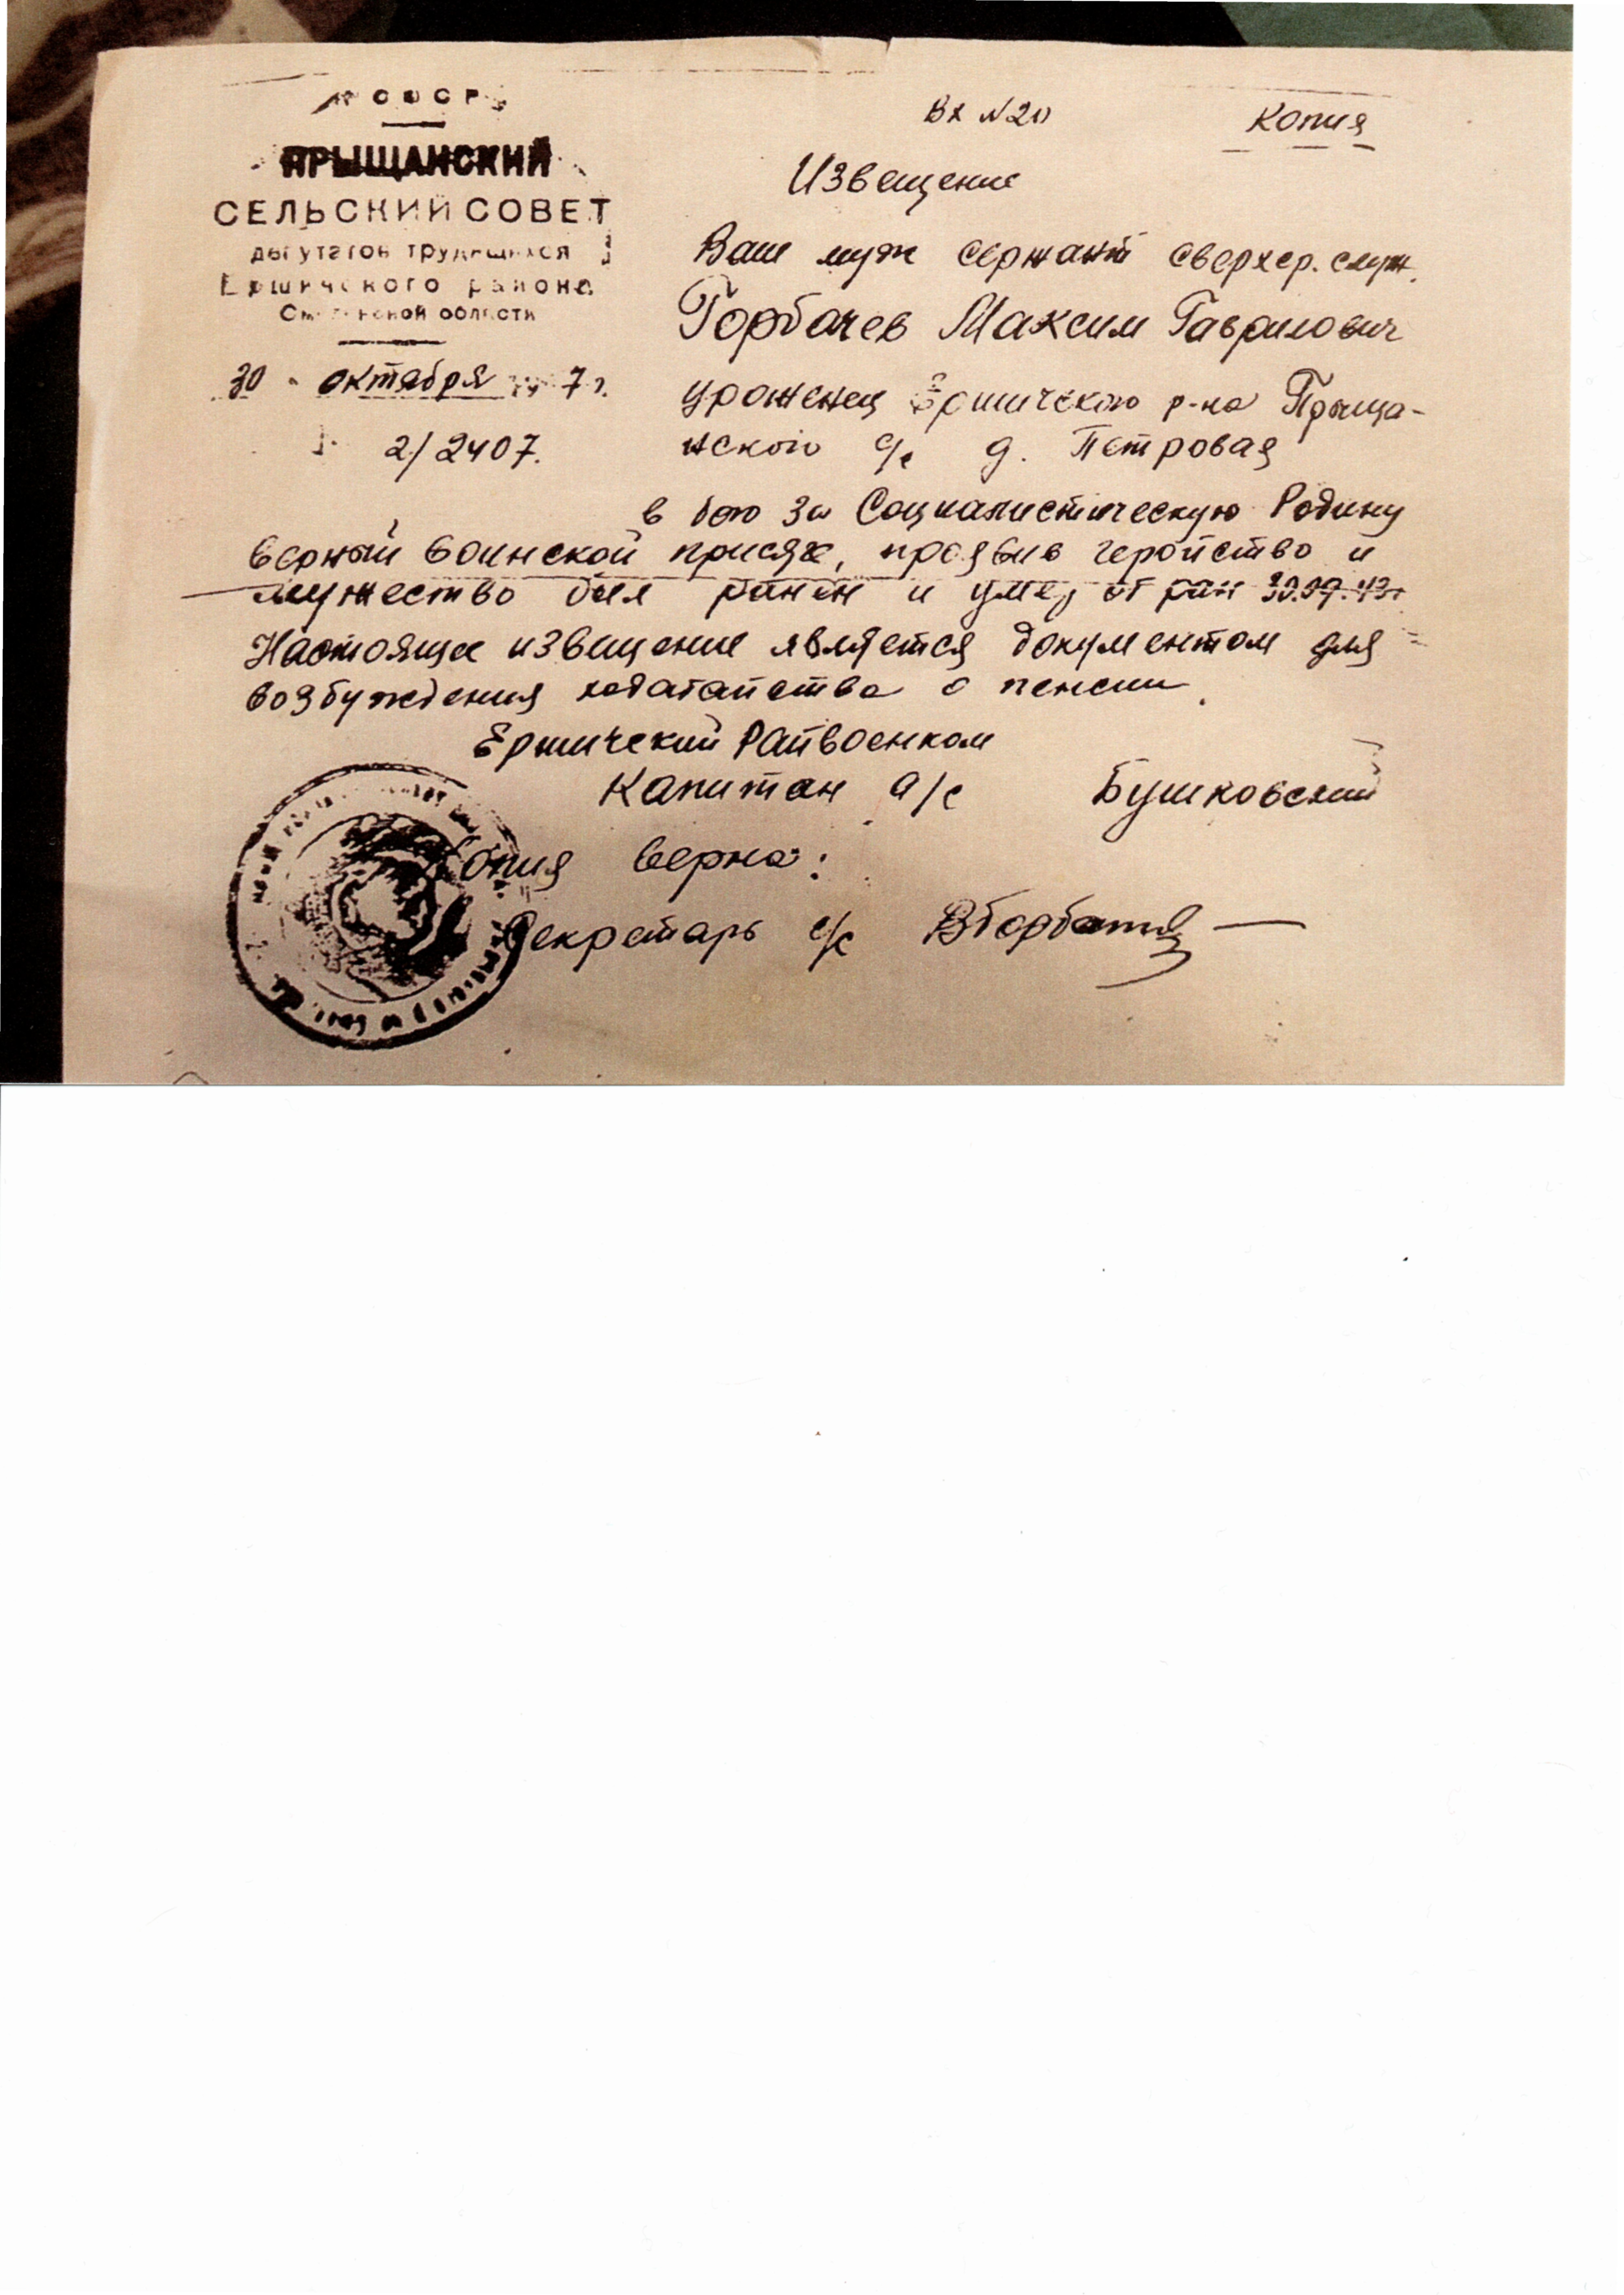 РСФСР
ПРЫЩАНСКИЙ
СЕЛЬСКИЙ СОВЕТ
депутатов трудящихся
Ершичского района
Смоленской области
30 октября 7 г.
2/2407.
Вх №20
Копия
Извещение
Ваш муж сержант сверхср. служ.
Горбачев Максим Гаврилович
уроженец Ершичского р-на Прыща-
нского с/с д. Петровая
в бою за Социалистическую Родину
верный воинской присяге, проявив геройство и
мужество был ранен и умер от ран 30.09.43г
Настоящее извещение является документом для
возбуждения ходатайства о пенсии.
Ершичский Райвоенком
Капитан а/с Бушковский
Копия верна:
Секретарь с/с